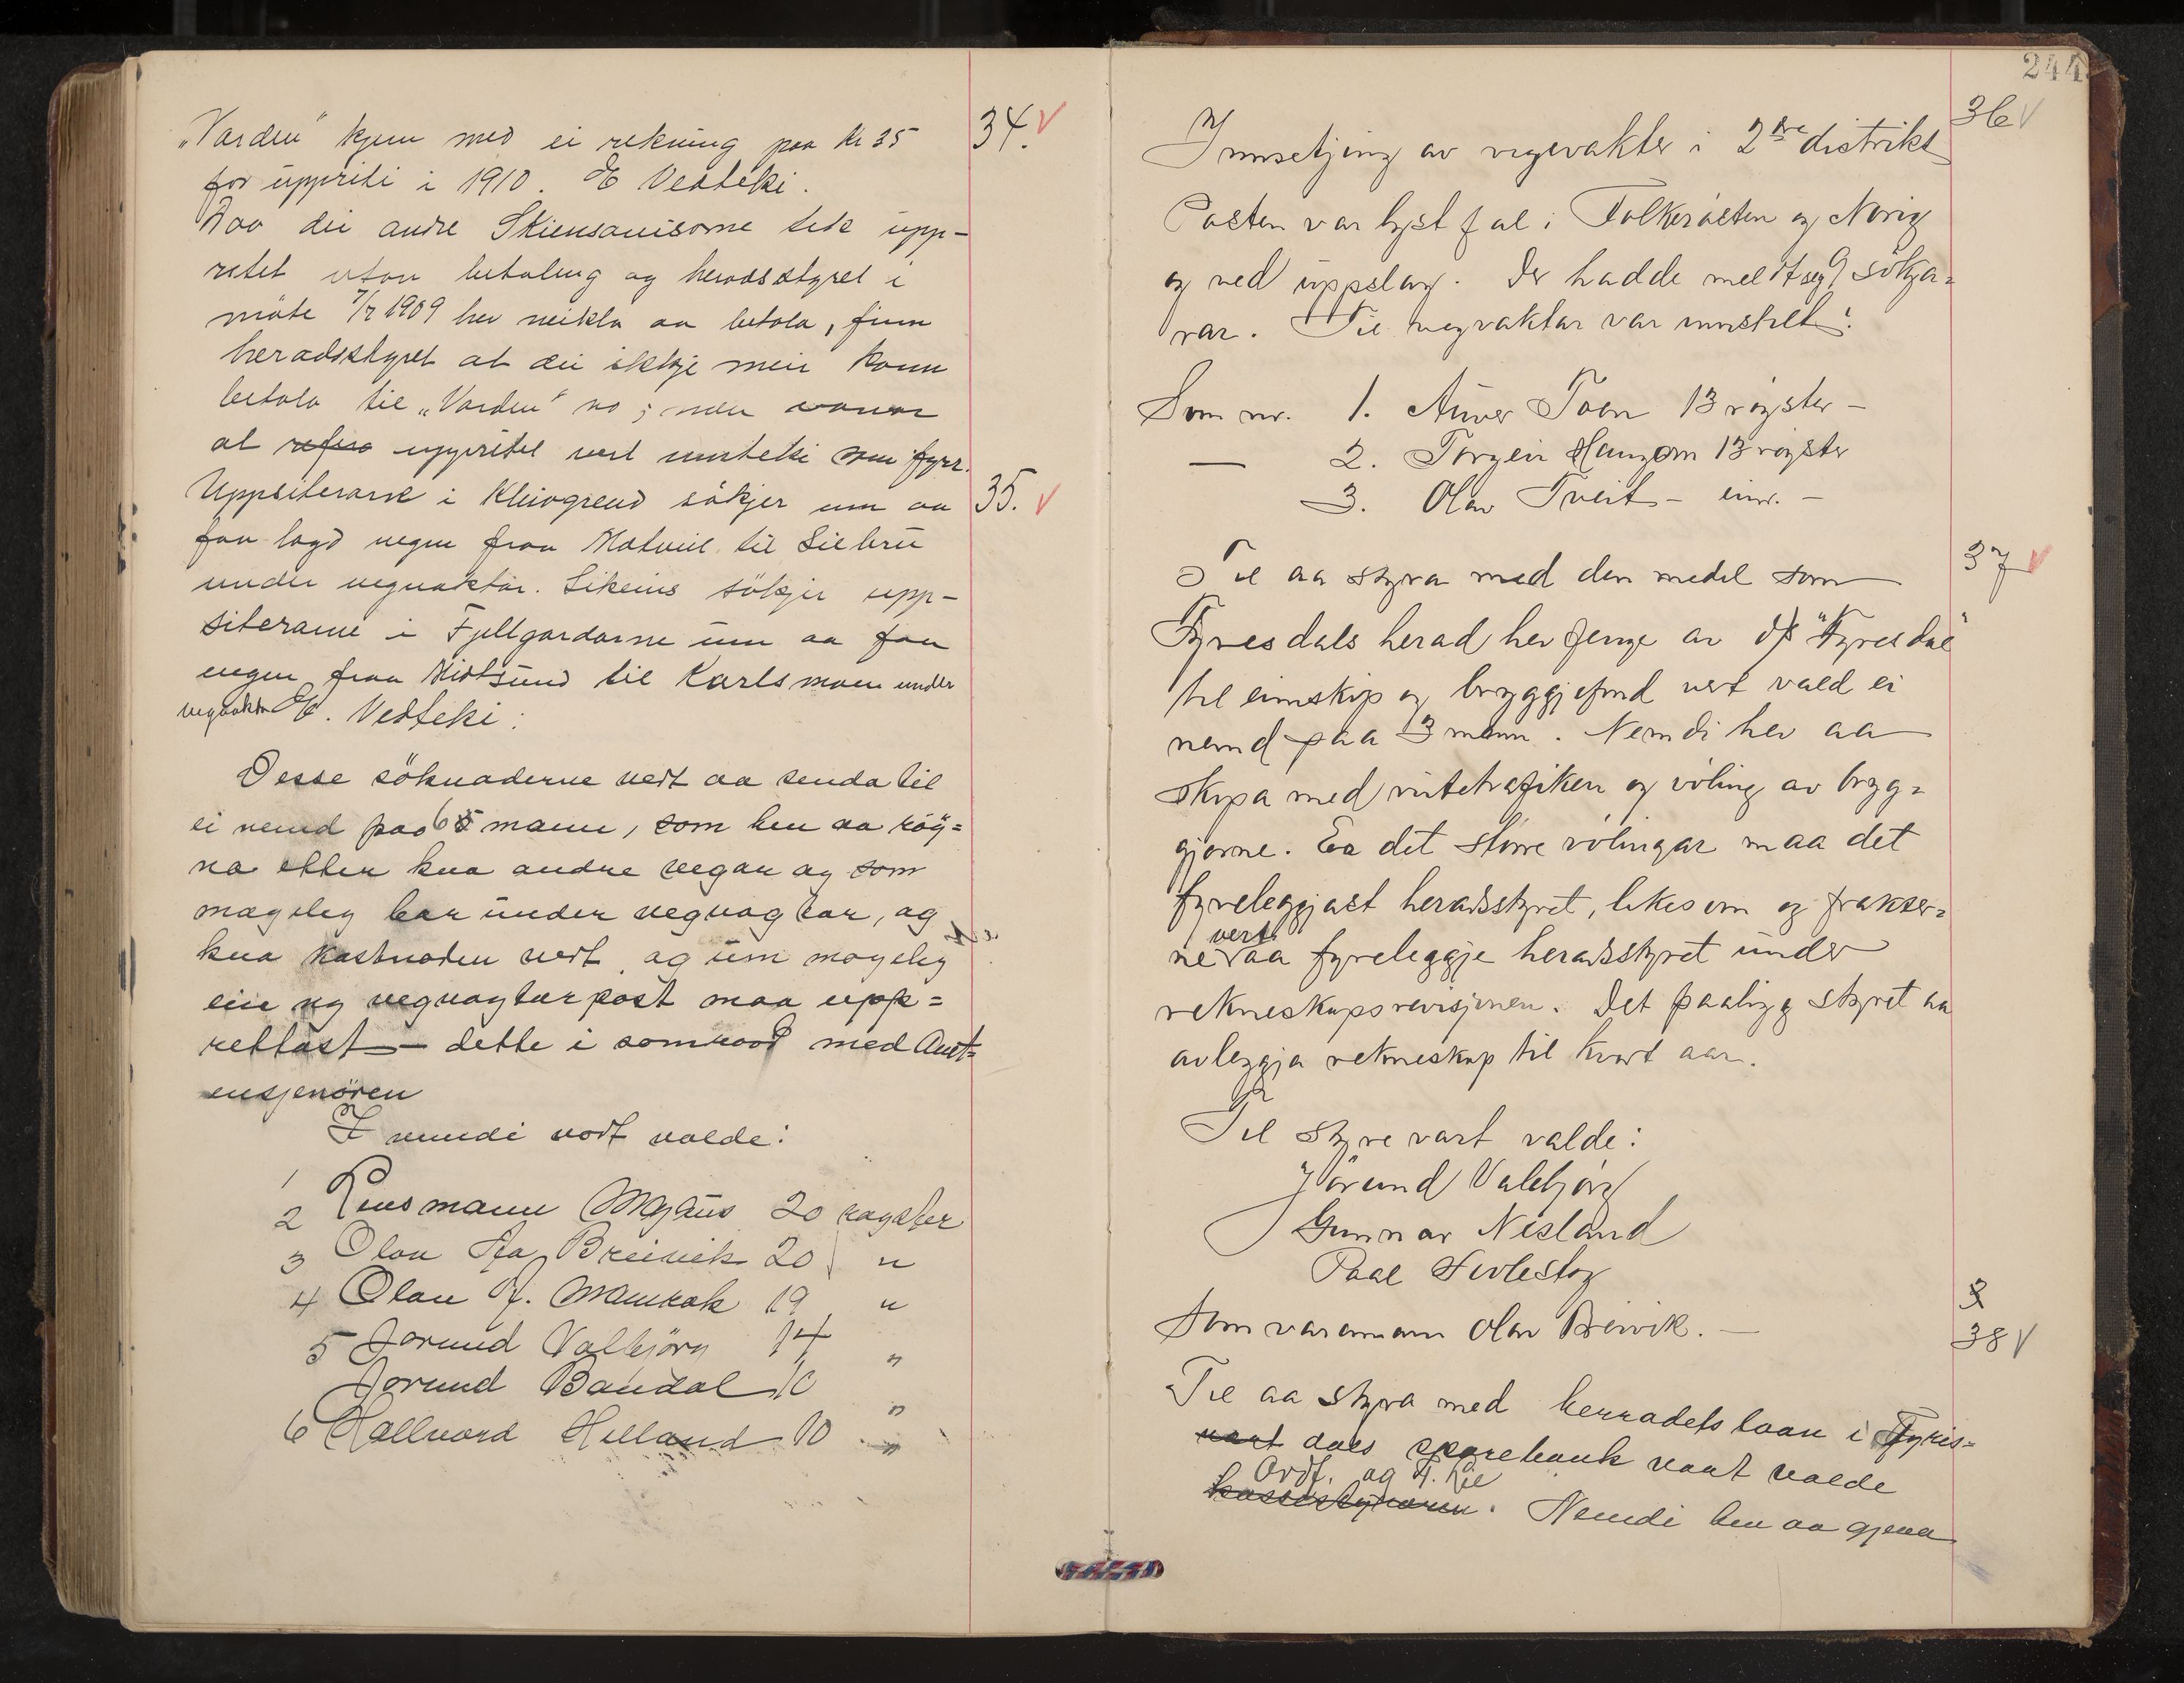 34.
„Varden" kjem med ei rekning paa Kr 35
for uppriti i 1910. Vedteki.
Daa dei andre Skiensavisorne tek upp-
ritet utan betaling og heradsstyret i
møte 7/7 1909 hev neikta aa betala, finn
heradsstyret at dei ikkje meir kann
betala til „Varden" no; men vonar
at refera uppritet vert innteki som fyrr.
35.
Uppsiterane i Kleivgrend søkjer um aa
faa lagd vegen fraa Hatveit til Liebru
under vegvaktar. Likeins søkjer upp-
siterane i Fjellgardarne um aa faa
vegen fraa Midtsund til Karlsmoen under
vegvaktar. Vedteki:
Desse söknaderne vert aa senda til
ei nemd paa 6 5 mann, som hev aa røg-
na etter kva andre vegar ag som
mogeleg bør under vegvagtar, ag
kva kostnaden vert, ag um mogeleg
ein ny vegvagtarpost maa upp-
rettast – dette i samraad med Amt-
ensjenören
I nemdi vart valde:
1 Lensmann Mgaus 20 røyster
2 Olav Aa. Breivik 20 "
3 Olav O. Momrak 19 "
4 Jorund Valbjörg 14 "
5 Jorund Bandal 10 "
6 Hallvard Helland 10 "
244
36
Innsetjing av vegevakter i 2dre distrikt
Posten var lyst fal i Folkerösten og Norig
og ved uppslag. Der hadde meldt seg 9 sökja-
rar. Til vegvaktar var innstilt:
Som nr. 1. Anver Toen 13 röyster –
— 2. Torgeir Haugom 13 röyster
3. Olav Tveit – einr. –
37
Til aa styra med den medel som
Fyresdals herad hev fenge av d/s "Fyresdal"
til eimskip og bryggjefond vert vald ei
nemd paa 3 mann. Nemdi hev aa
skipa med rutetrafiken og völing av bryg-
gjorne. Er det större völingar maa det
fyreleggjast heradsstyret, likesom og frakter-
ne vert aa fyreleggje heradsstyret under
rekneskapsrevisjonen. Det paaligg styret aa
avleggja rekneskap til kvart aar.
Til styre vart valde:
Jörund Valbjörg
Gunnar Nesland
Paal Kvolestoy
Som varamann Olav Breivik. —
38
Til aa styra med herradets laan i Fyris-
vart dals sparebank vart valde
Ordf. ag H. Lie
kassestyraren. Nemdi hev aa gjeva